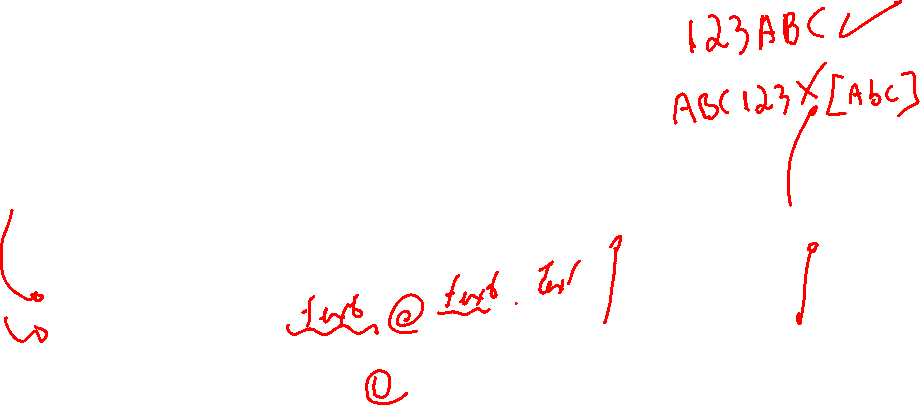 123ABC ✓
ABC123 X [AbC]
text @ text . text
@